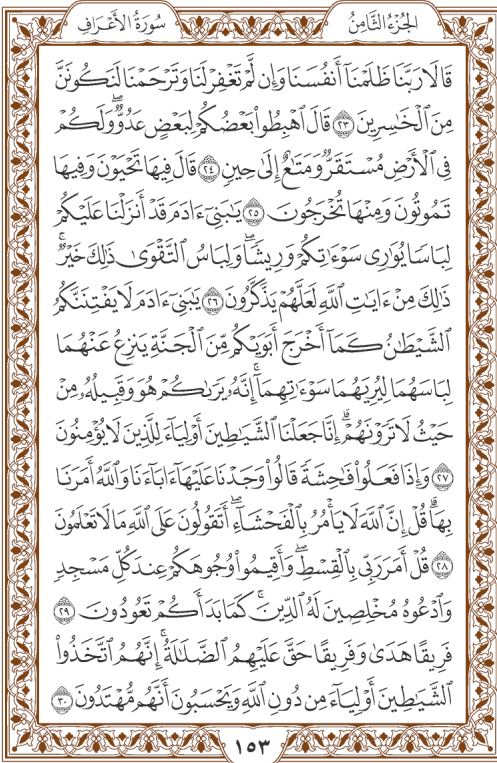 الجُزْءُ الثَّامِنُ
سُورَةُ الأَعْرَافِ
قَالَا رَبَّنَا ظَلَمْنَآ أَنفُسَنَا وَإِن لَّمْ تَغْفِرْ لَنَا وَتَرْحَمْنَا لَنَكُونَنَّ
مِنَ ٱلْخَـٰسِرِينَ ٢٣ قَالَ ٱهْبِطُوا۟ بَعْضُكُمْ لِبَعْضٍ عَدُوٌّ ۖ وَلَكُمْ
فِى ٱلْأَرْضِ مُسْتَقَرٌّ وَمَتَـٰعٌ إِلَىٰ حِينٍ ٢٤ قَالَ فِيهَا تَحْيَوْنَ وَفِيهَا
تَمُوتُونَ وَمِنْهَا تُخْرَجُونَ ٢٥ يَـٰبَنِىٓ ءَادَمَ قَدْ أَنزَلْنَا عَلَيْكُمْ
لِبَاسًا يُوَٰرِى سَوْءَٰتِكُمْ وَرِيشًا ۖ وَلِبَاسُ ٱلتَّقْوَىٰ ذَٰلِكَ خَيْرٌ ۚ
ذَٰلِكَ مِنْ ءَايَـٰتِ ٱللَّهِ لَعَلَّهُمْ يَذَّكَّرُونَ ٢٦ يَـٰبَنِىٓ ءَادَمَ لَا يَفْتِنَنَّكُمُ
ٱلشَّيْطَـٰنُ كَمَآ أَخْرَجَ أَبَوَيْكُم مِّنَ ٱلْجَنَّةِ يَنزِعُ عَنْهُمَا
لِبَاسَهُمَا لِيُرِيَهُمَا سَوْءَٰتِهِمَآ ۗ إِنَّهُۥ يَرَىٰكُمْ هُوَ وَقَبِيلُهُۥ مِنْ
حَيْثُ لَا تَرَوْنَهُمْ ۗ إِنَّا جَعَلْنَا ٱلشَّيَـٰطِينَ أَوْلِيَآءَ لِلَّذِينَ لَا يُؤْمِنُونَ
٢٧ وَإِذَا فَعَلُوا۟ فَـٰحِشَةً قَالُوا۟ وَجَدْنَا عَلَيْهَآ ءَابَآءَنَا وَٱللَّهُ أَمَرَنَا
بِهَا ۗ قُلْ إِنَّ ٱللَّهَ لَا يَأْمُرُ بِٱلْفَحْشَآءِ ۖ أَتَقُولُونَ عَلَى ٱللَّهِ مَا لَا تَعْلَمُونَ
٢٨ قُلْ أَمَرَ رَبِّى بِٱلْقِسْطِ ۖ وَأَقِيمُوا۟ وُجُوهَكُمْ عِندَ كُلِّ مَسْجِدٍ
وَٱدْعُوهُ مُخْلِصِينَ لَهُ ٱلدِّينَ ۚ كَمَا بَدَأَكُمْ تَعُودُونَ ٢٩
فَرِيقًا هَدَىٰ وَفَرِيقًا حَقَّ عَلَيْهِمُ ٱلضَّلَـٰلَةُ ۗ إِنَّهُمُ ٱتَّخَذُوا۟
ٱلشَّيَـٰطِينَ أَوْلِيَآءَ مِن دُونِ ٱللَّهِ وَيَحْسَبُونَ أَنَّهُم مُّهْتَدُونَ ٣٠
١٥٣